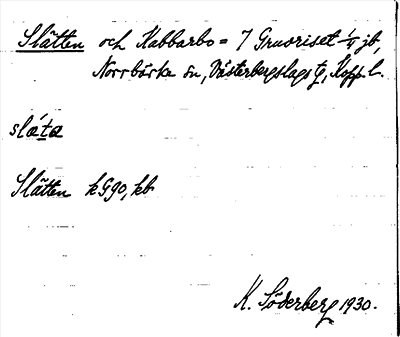 Slätten och Kabbarbo = 7 Gruvriset 1/4 jb,
Norrbärke sn, Västerbergslags tg, Kopp. l.
slǽta
Slätten k G90, kb
K. Söderberg 1930.